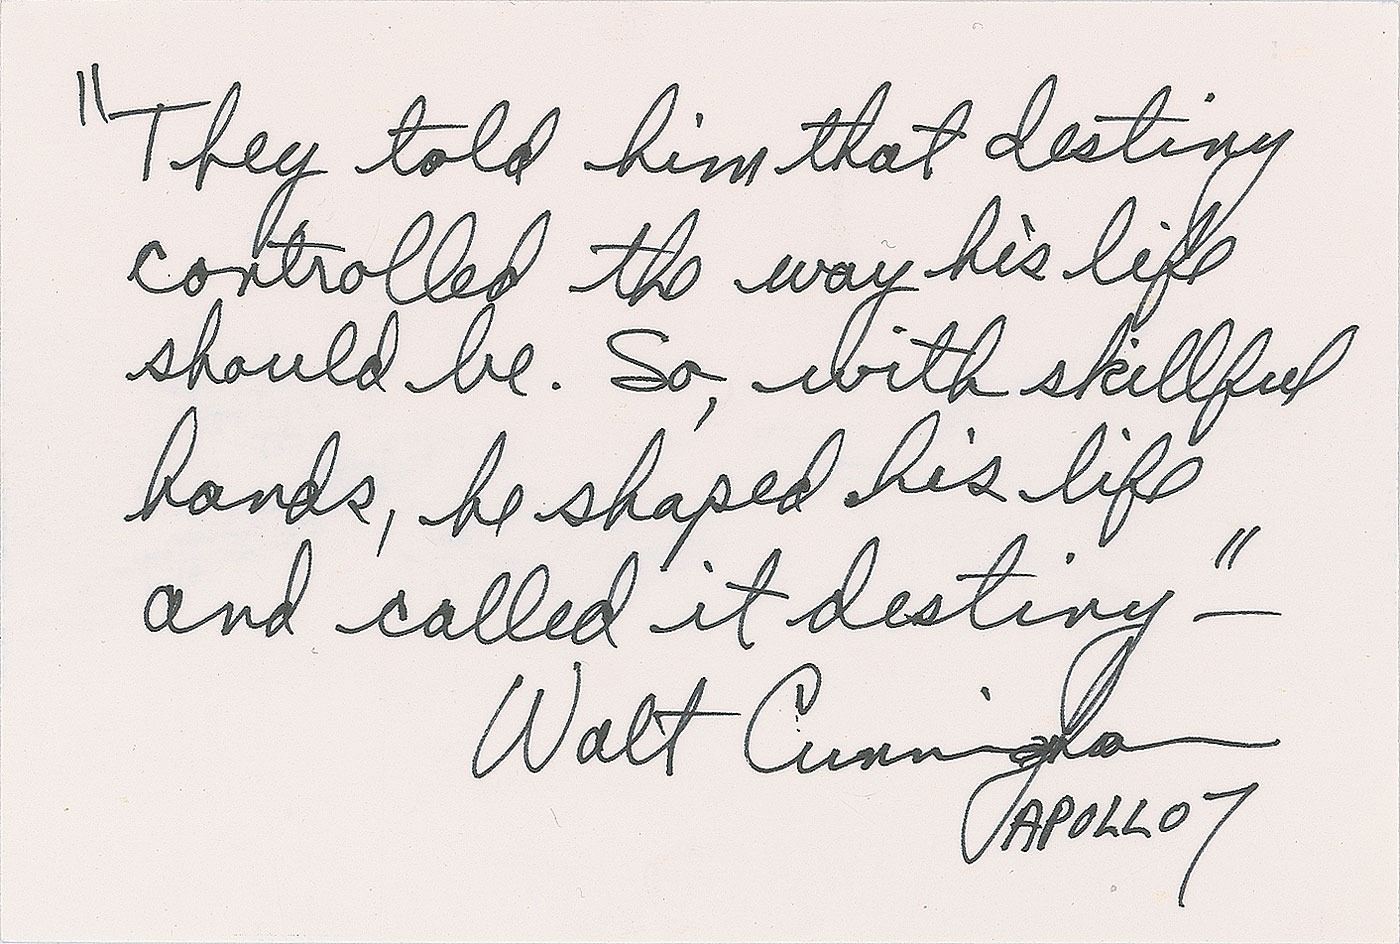 "They told him that destiny
controlled the way his life
should be. So, with skillful
hands, he shaped his life
and called it destiny" —
Walt Cunningham
APOLLO 7